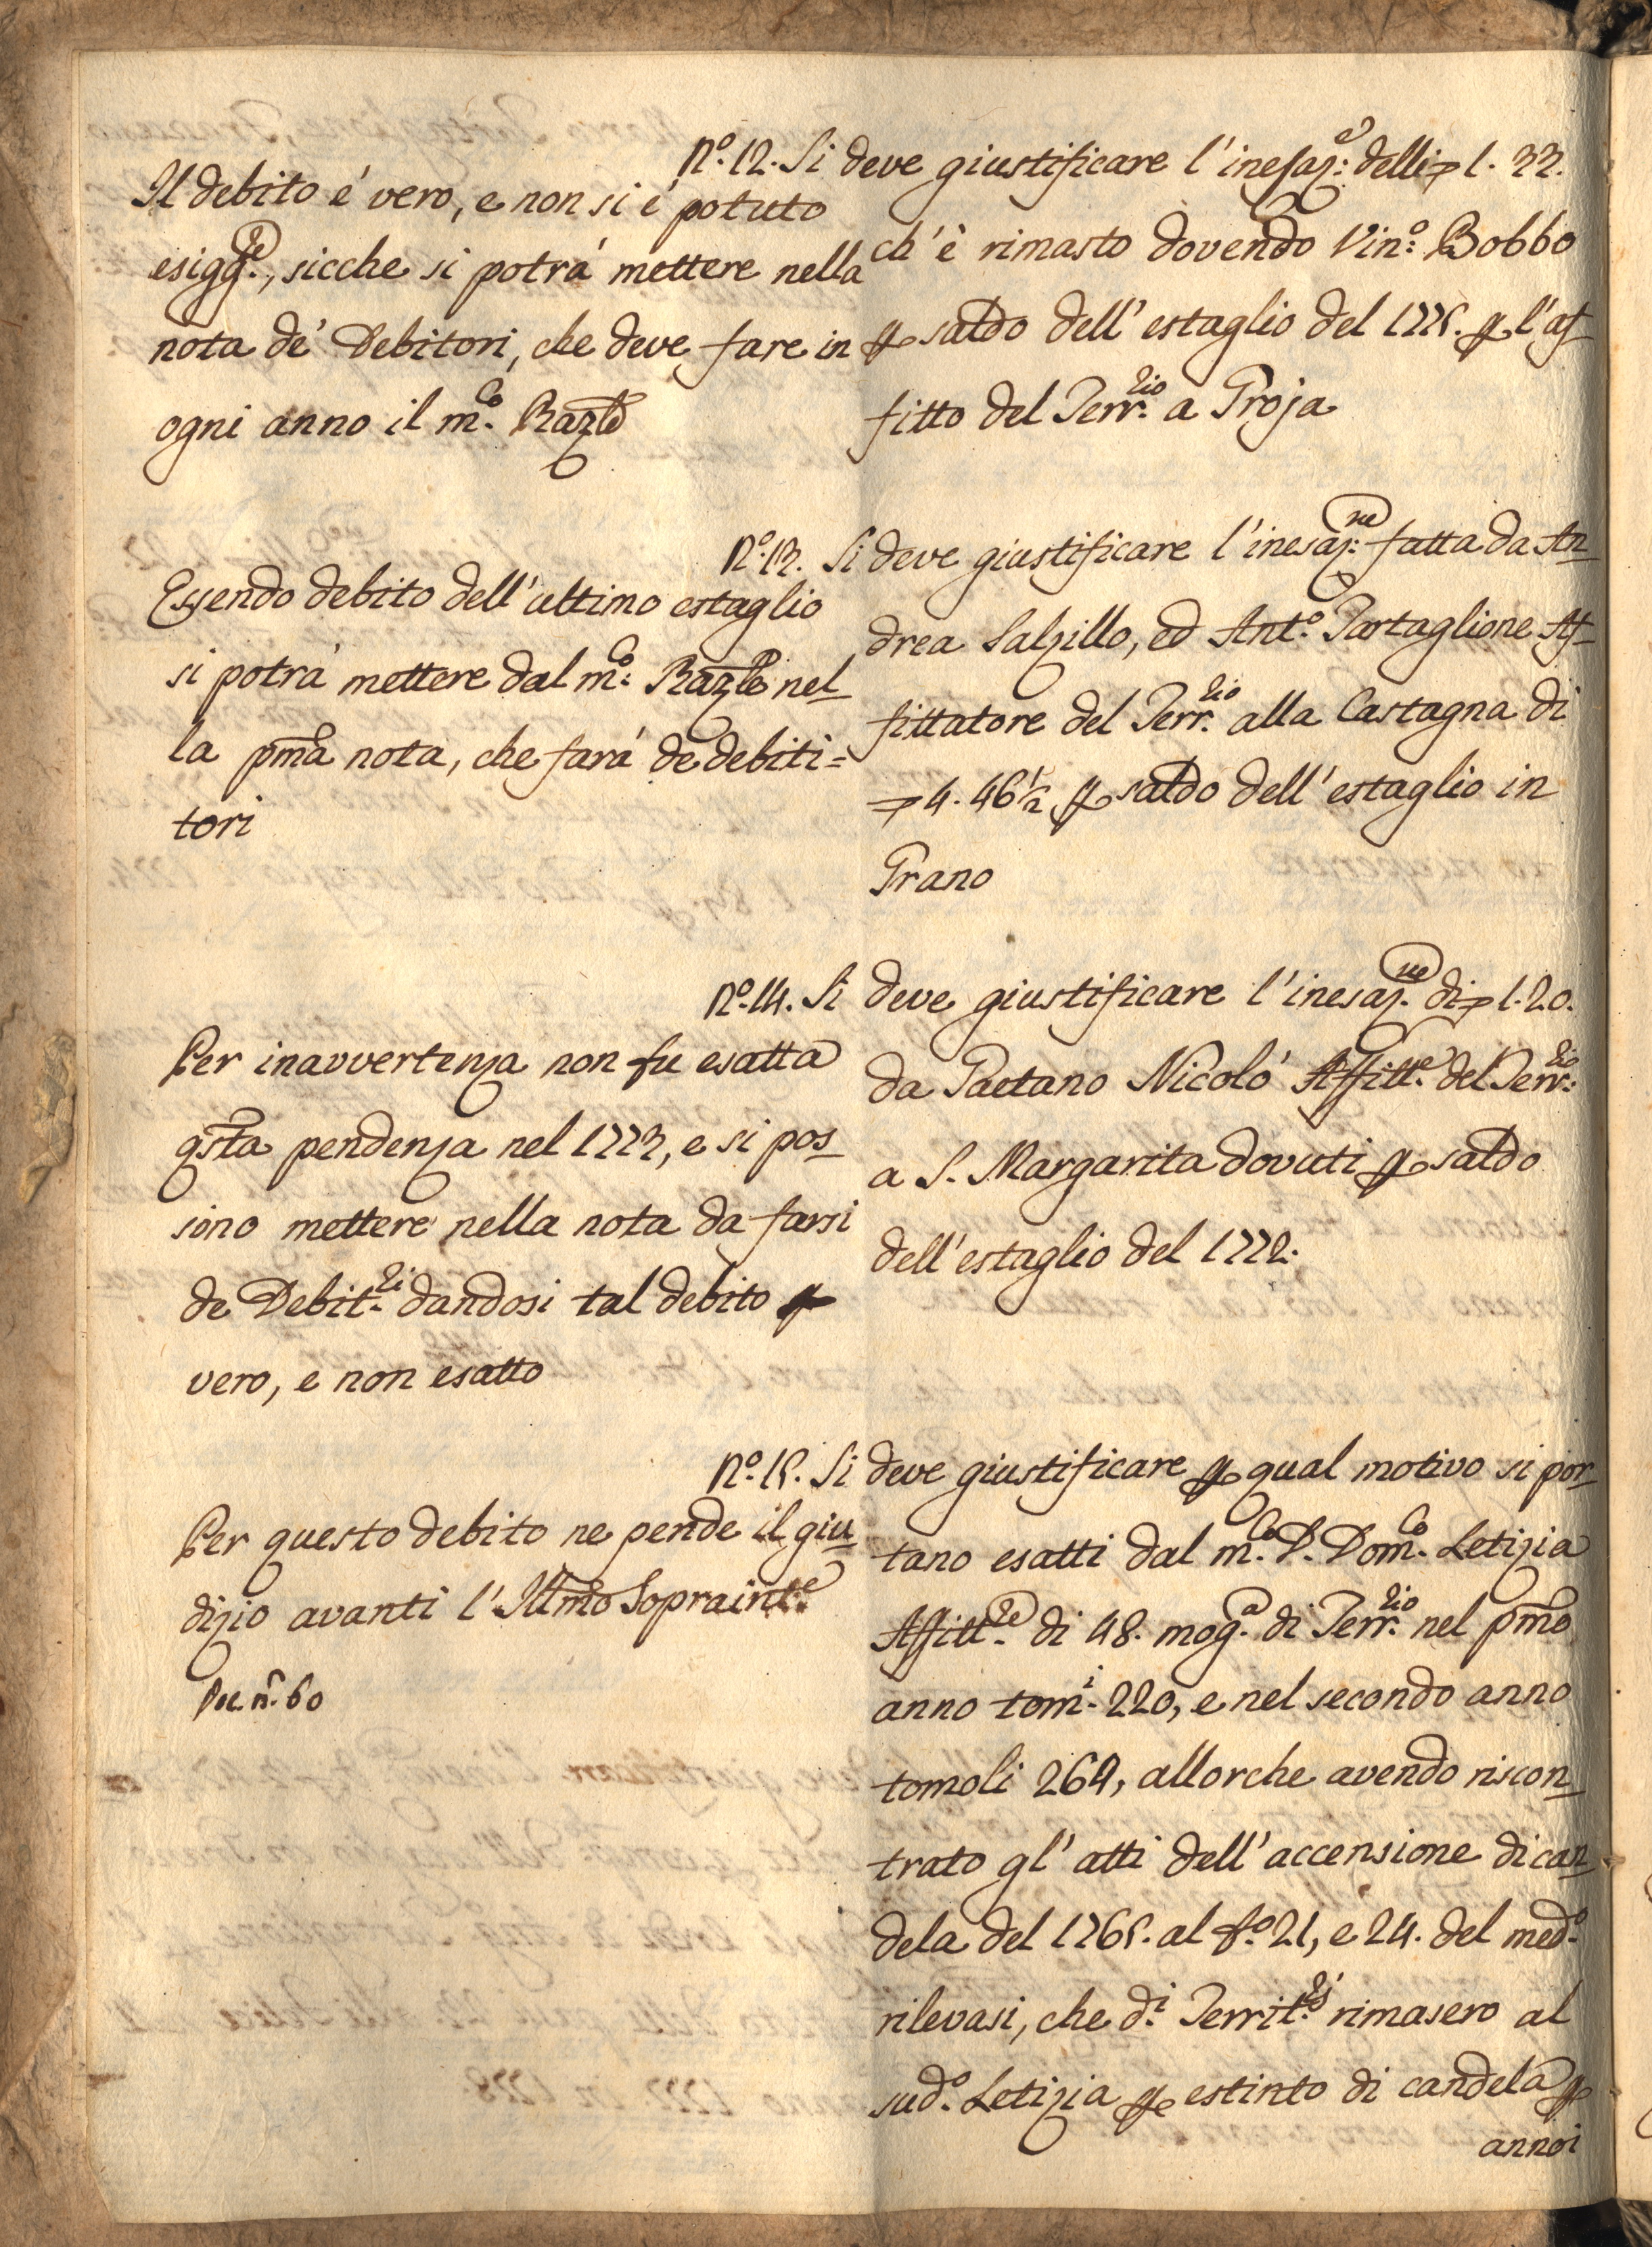 N.º 12. Si deve giustificare l'inesaz:e delli 1. 33.
ch'è rimasto dovendo Vin:º Bobbo
p saldo dell'estaglio del 1775. p l'af_
fitto del Terr.rio a Troja
Il debito é vero, e non si é potuto
esigg.re, sicche si potrá mettere nella
nota de' Debitori, che deve fare in
ogni anno il m.co Razle
N.º 13. Si deve giustificare l'inesaz:ne fatta da An_
drea Salzillo, ed Ant.º Tartaglione Af_
fittatore del Terr.rio alla Castagna di
4. 46½ p saldo dell'estaglio in
Grano
Essendo debito dell'ultimo estaglio
si potrá mettere dal m:co Razle nel_
la pma nota, che fará de debiti=
tori
N.º 14. Si deve giustificare l'inesaz.ne di 1. 20.
da Gaetano Nicoló Affitt.e del Terr:rio
a S. Margarita dovuti p saldo
dell'estaglio del 1772.
Per inavvertenza non fu esatta
qsta pendenza nel 1773, e si pos_
sino mettere nella nota da farsi
de Debit.ri dandosi tal debito p
vero, e non esatto
N.º 15. Si deve giustificare p qual motivo si por_
tano esatti dal m.co D. Dom.co Letizia
Affitt.re di 48. mog.a di Terr.rio nel pmo
anno tom.i 220, e nel secondo anno
tomoli 264, allorche avendo riscon_
trato gl'atti dell'accensione di can_
dela del 1765. al f.º 21, e 24. del med.º
rilevasi, che d.i Territ.rj rimasero al
sud.º Letizia p estinto di candela p
anni
Per questo debito ne pende il giu_
dizio avanti l'Illmo Sopraint.e
n.º 60